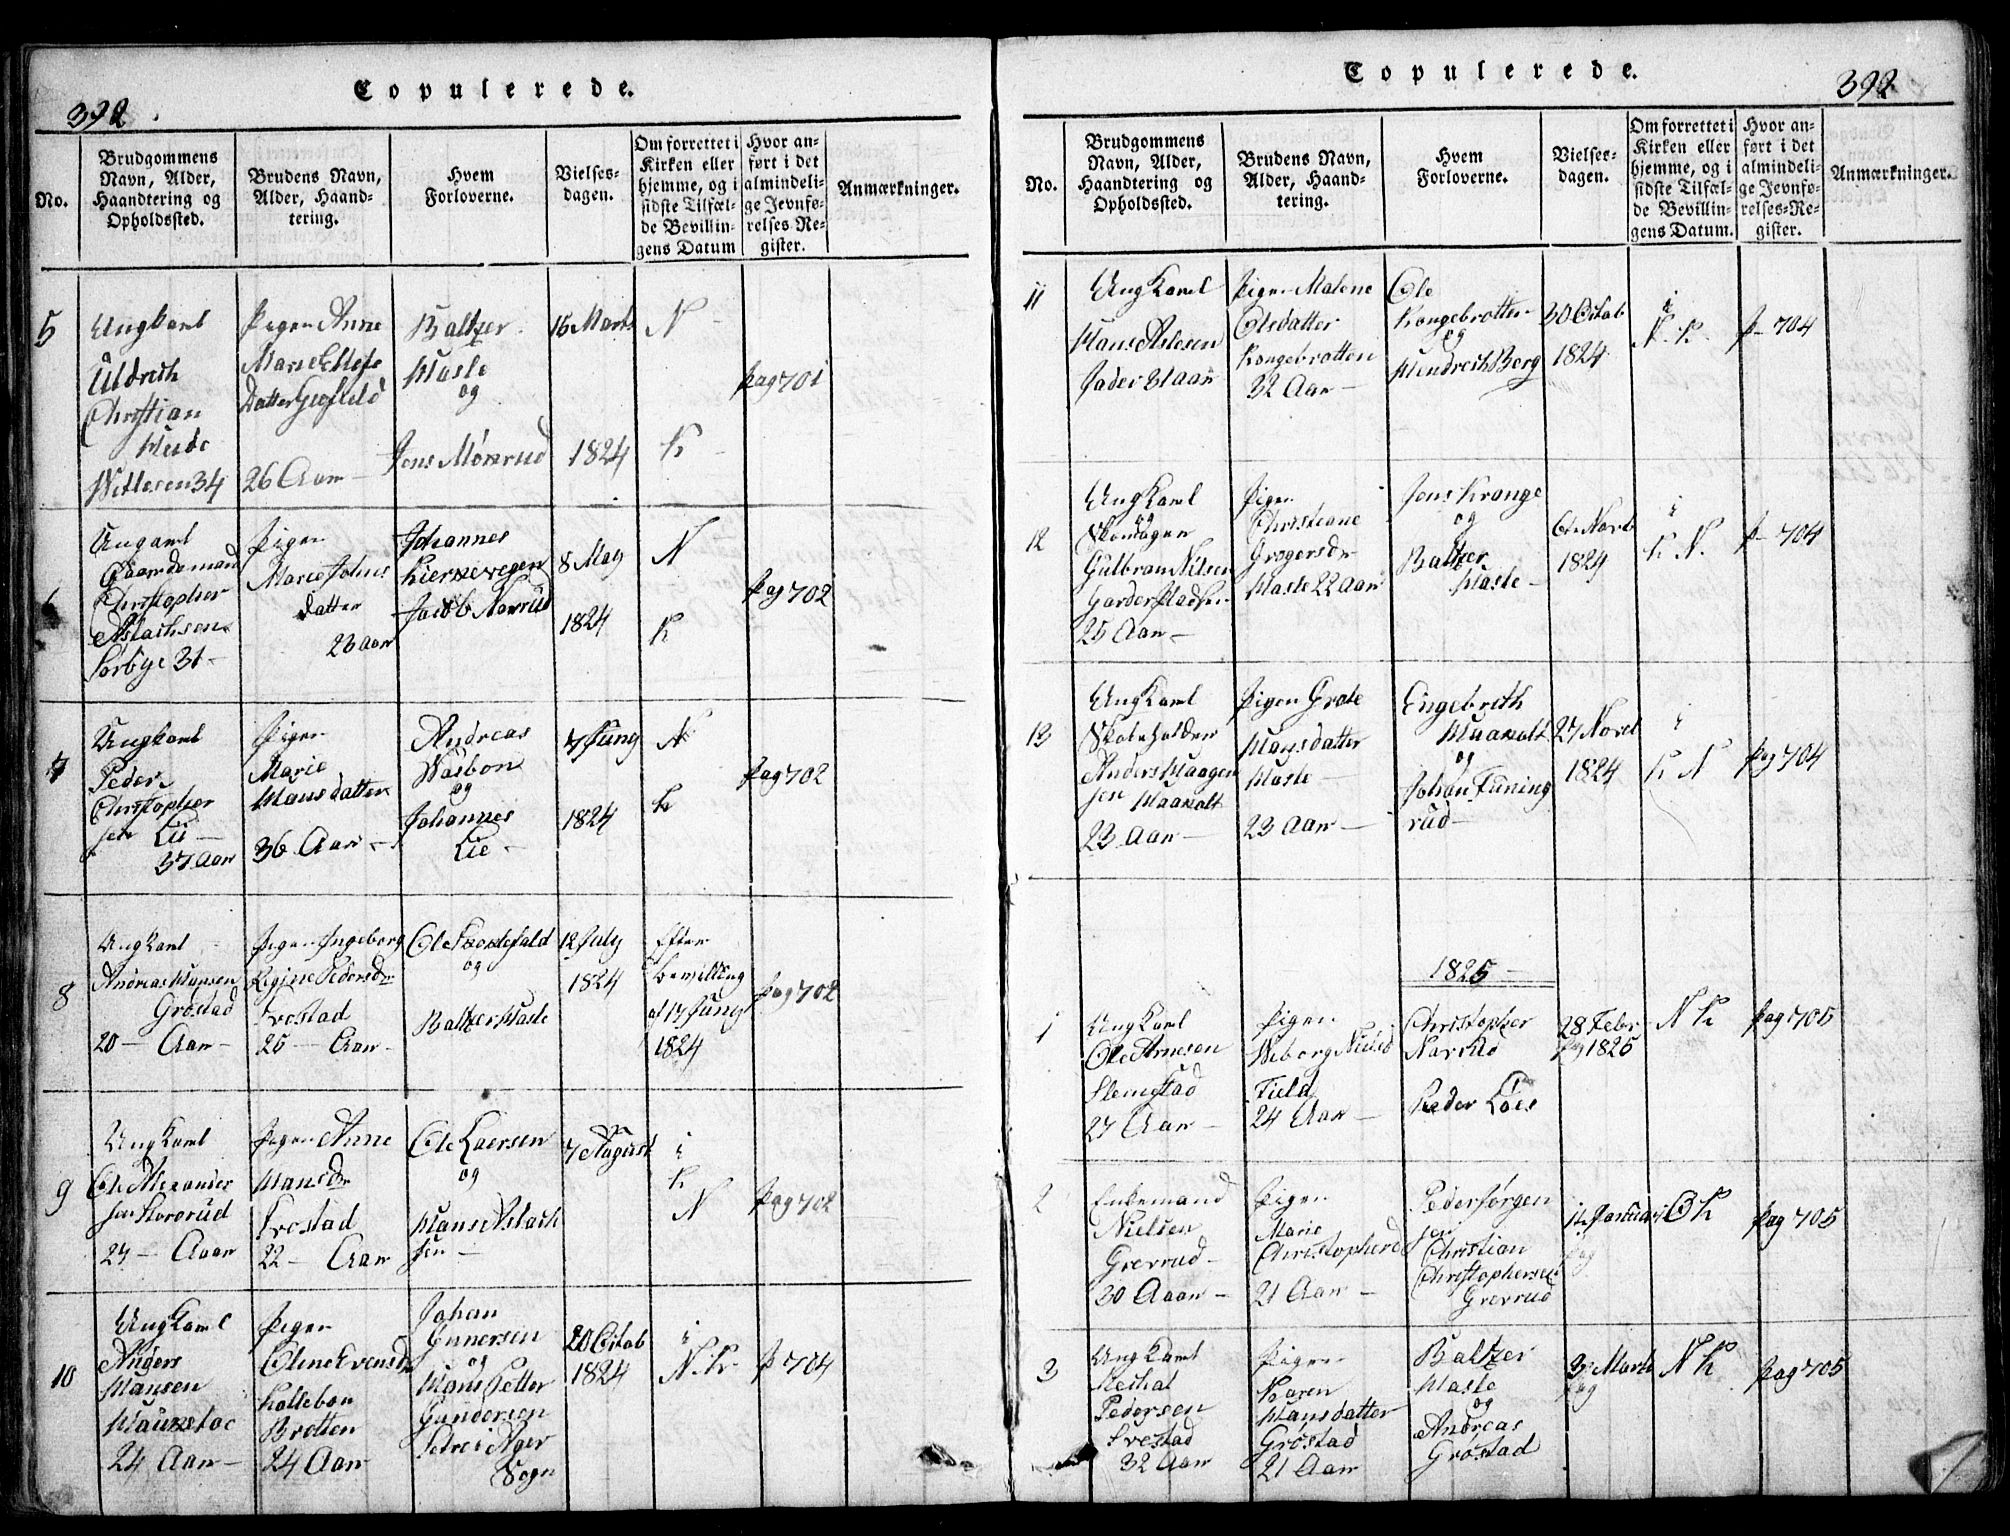 392
Copulerede.
No.
Brudgommens
Navn, Alder,
Haandtering og
Opholdssted.
Brudens Navn,
Alder, Haand-
tering.
Hvem
Forloverne.
Vielses-
dagen.
Om forrettet i
Kirken eller
hjemme, og i
sidste Tilfæl-
de Bevillin-
gens Datum
Hvor an-
ført i det
almindeli-
ge Jevnfø-
relses-Re-
gister.
Anmærkninger.
5
Ungkarl
Uldrich
Christian
Wittesen 34
Pigen Anne
Marie
Datter
26 Aar
Baltzer
Hasle
og
Jens Mørkrud
16 Marts
1824
N
K
pag 701
Gaardemand
Christopher
Aslachsen
Sorbye 31
Pigen
Marie Johns
datter
23 aar
Johannes
Kiernevegen
Jacob Norrud
8 May
1824
N
K
pag 702
7
Ungkarl
Peder
Christopher
sen Lii
37 Aar
Pigen
Marie
Hansdatter
36 Aar
Andreas
og
Johannes
Lie
7 Juny
1824
N
K
pag 702
8
Ungkarl
Andreas Hansen
Grøstad
20 Aar
Pigen Ingeborg
Regine Pedersdr
Frostad
25 Aar
Ole
og
Baltzer Hasle
12 July
1824
Efter
bevilling
af 17 Juny
1824
pag 702
9
Ungkarl
Ole Alexander
sen Stororud
24 Aar
Pigen Anne
Hansdr
Frostad
22 Aar
Ole Laersen
og
Hans Aslach
sen
7 August
i
K
N
pag 702
10
Ungkarl
Anders
Hansen
24 Aar
Pigen
Oline Evensdr
Kollebon
Brotten
24 Aar
Johan
Gunersen
og
Hans Petter
Gundersen
Agers
Sogn
20 Octob
1824
i
N. K.
p 704
Copulerede.
392
No.
Brudgommens
Navn, Alder,
Haandtering og
Opholdssted.
Brudens Navn,
Alder, Haand-
tering.
Hvem
Forloverne.
Vielses-
dagen.
Om forrettet i
Kirken eller
hjemme, og i
sidste Tilfæl-
de Bevillin-
gens Datum.
Hvor an-
ført i det
almindeli-
ge Jevnfø-
relses-Re-
gister.
Anmærkninger.
11
Ungkarl
Hans Aslesen
Jader 31 aar
Pigen Malene
Olsdatter
Kongebrotten
32 Aar
Ole
Kongebrotten
og
Hendrich Berg
30 Octob
1824
i
N. K.
p 704
12
Ungkarl
og
Skomager
Gulbran Nilsen
25 Aar
Pigen
Christiane
Gregersdr
Hasle 22 Aar
Jens Krange
og
Baltzer
Hasle
6te Novb
1824
i
K N.
p 704
13
Ungkarl
Skoleholder
Anders Haagen
sen Haakolt
23 Aar
Pigen Grete
Hansdatter
Hasle
23 Aar
Engebreth
Haakolt
og
Johan Tuning
rud
27 Novb
1824
i
K N
pag 704
1825
1
Ungkarl
Ole Arnesen
Slemstad
27 Aar
Pigen
Field
24 Aar
Christopher
Norrud
Peder Løes
28 Febr
1825
N K
pag 705
2
Enkemand
Nielsen
Grevrud
30 Aar
Pigen
Marie
Christopherd
21 Aar
Peder Jørgen
sen
Christian
Christophersen
Grevrud
Januari
O K
pag 705
3
Ungkarl
Mechal
Pedersen
Svestad
32 Aar
Pigen
Karen
Hansdatter
Grøstad
21 Aar
Baltzer
Hasle
og
Andreas
Grøstad
Marts
N K
pag 705